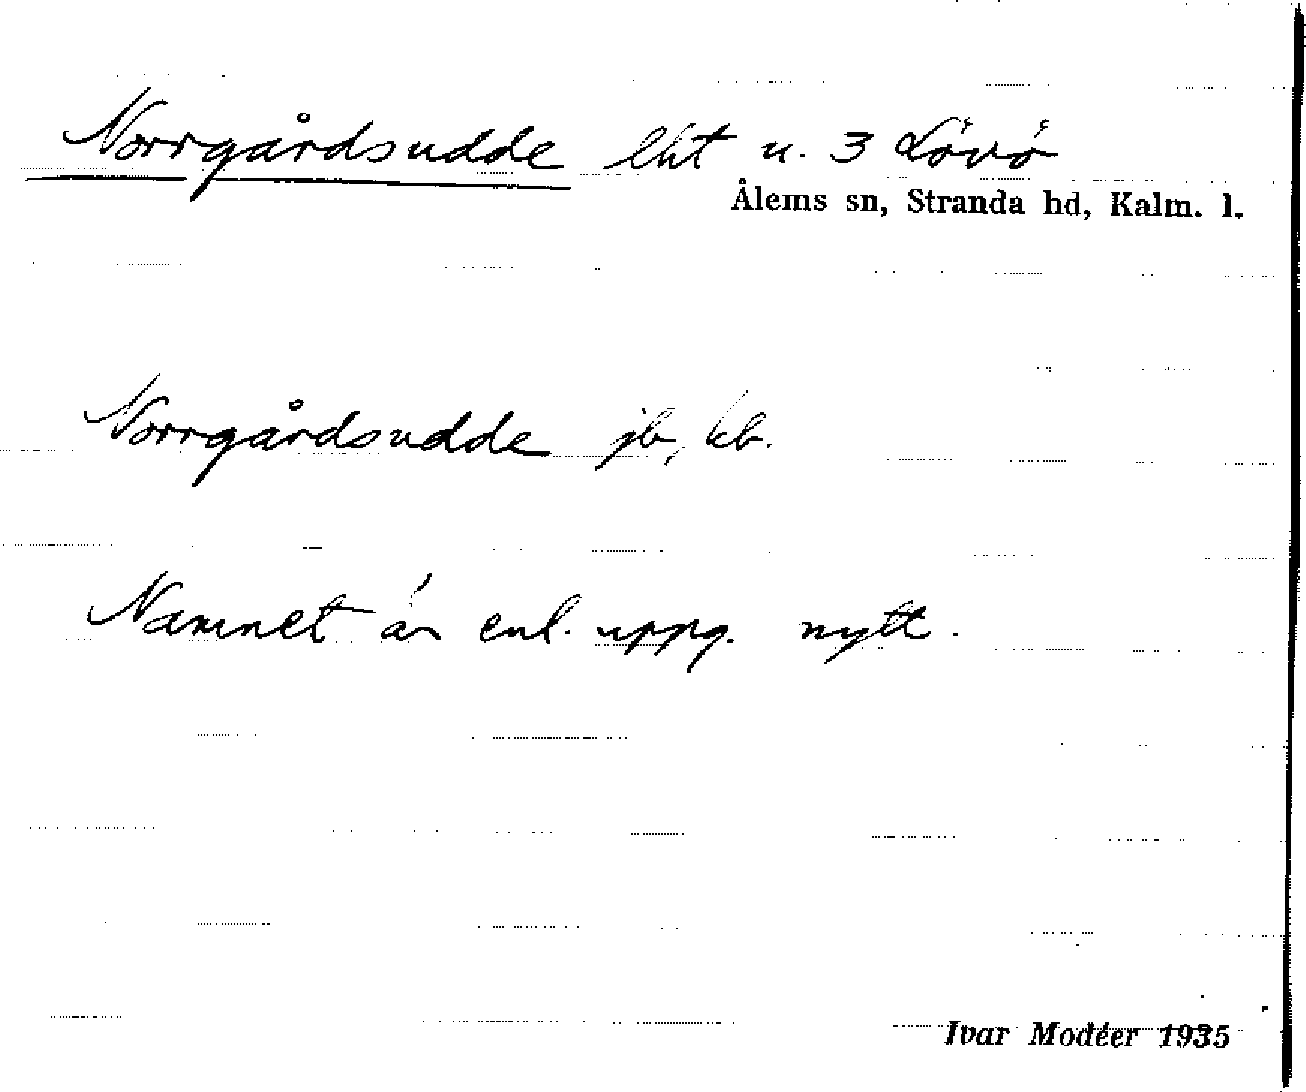 Norrgårdsudde lht u. 3 Lövö
Ålems sn, Stranda hd, Kalm. l.
Norrgårdsudde jb, kb.
Namnet är enl. uppg. nytt.
Ivar Modéer 1935